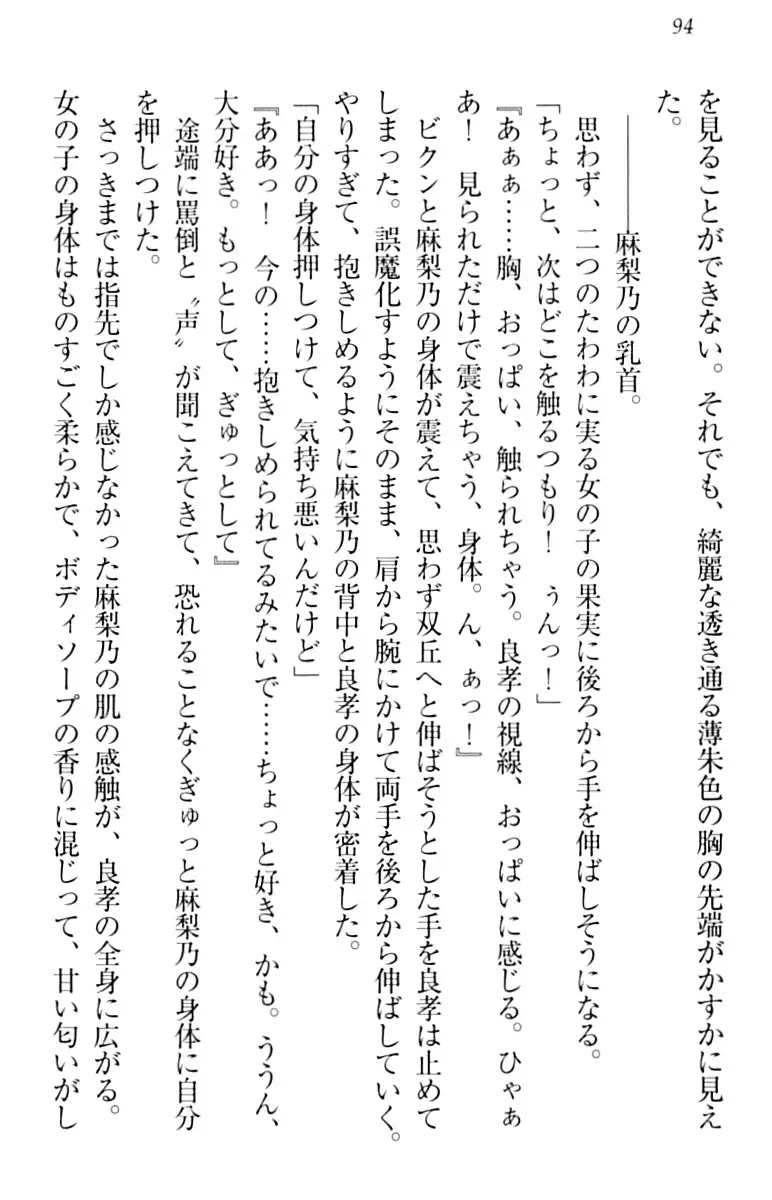 94
を見ることができない。それでも、綺麗な透き通る薄朱色の胸の先端がかすかに見え
た。
――――麻梨乃の乳首。
思わず、二つのたわわに実る女の子の果実に後ろから手を伸ばしそうになる。
「ちょっと、次はどこを触るつもり！　ぅんっ！」
『あぁぁ……胸、おっぱい、触られちゃう。良孝の視線、おっぱいに感じる。ひゃぁ
あ！　見られただけで震えちゃう、身体。ん、ぁっ！』
ビクンと麻梨乃の身体が震えて、思わず双丘へと伸ばそうとした手を良孝は止めて
しまった。誤魔化すようにそのまま、肩から腕にかけて両手を後ろから伸ばしていく。
やりすぎて、抱きしめるように麻梨乃の背中と良孝の身体が密着した。
「自分の身体押しつけて、気持ち悪いんだけど」
『ああっ！　今の……抱きしめられてるみたいで……ちょっと好き、かも。ううん、
大分好き。もっとして、ぎゅっとして』
途端に罵倒と〝声〟が聞こえてきて、恐れることなくぎゅっと麻梨乃の身体に自分
を押しつけた。
さっきまでは指先でしか感じなかった麻梨乃の肌の感触が、良孝の全身に広がる。
女の子の身体はものすごく柔らかで、ボディソープの香りに混じって、甘い匂いがし